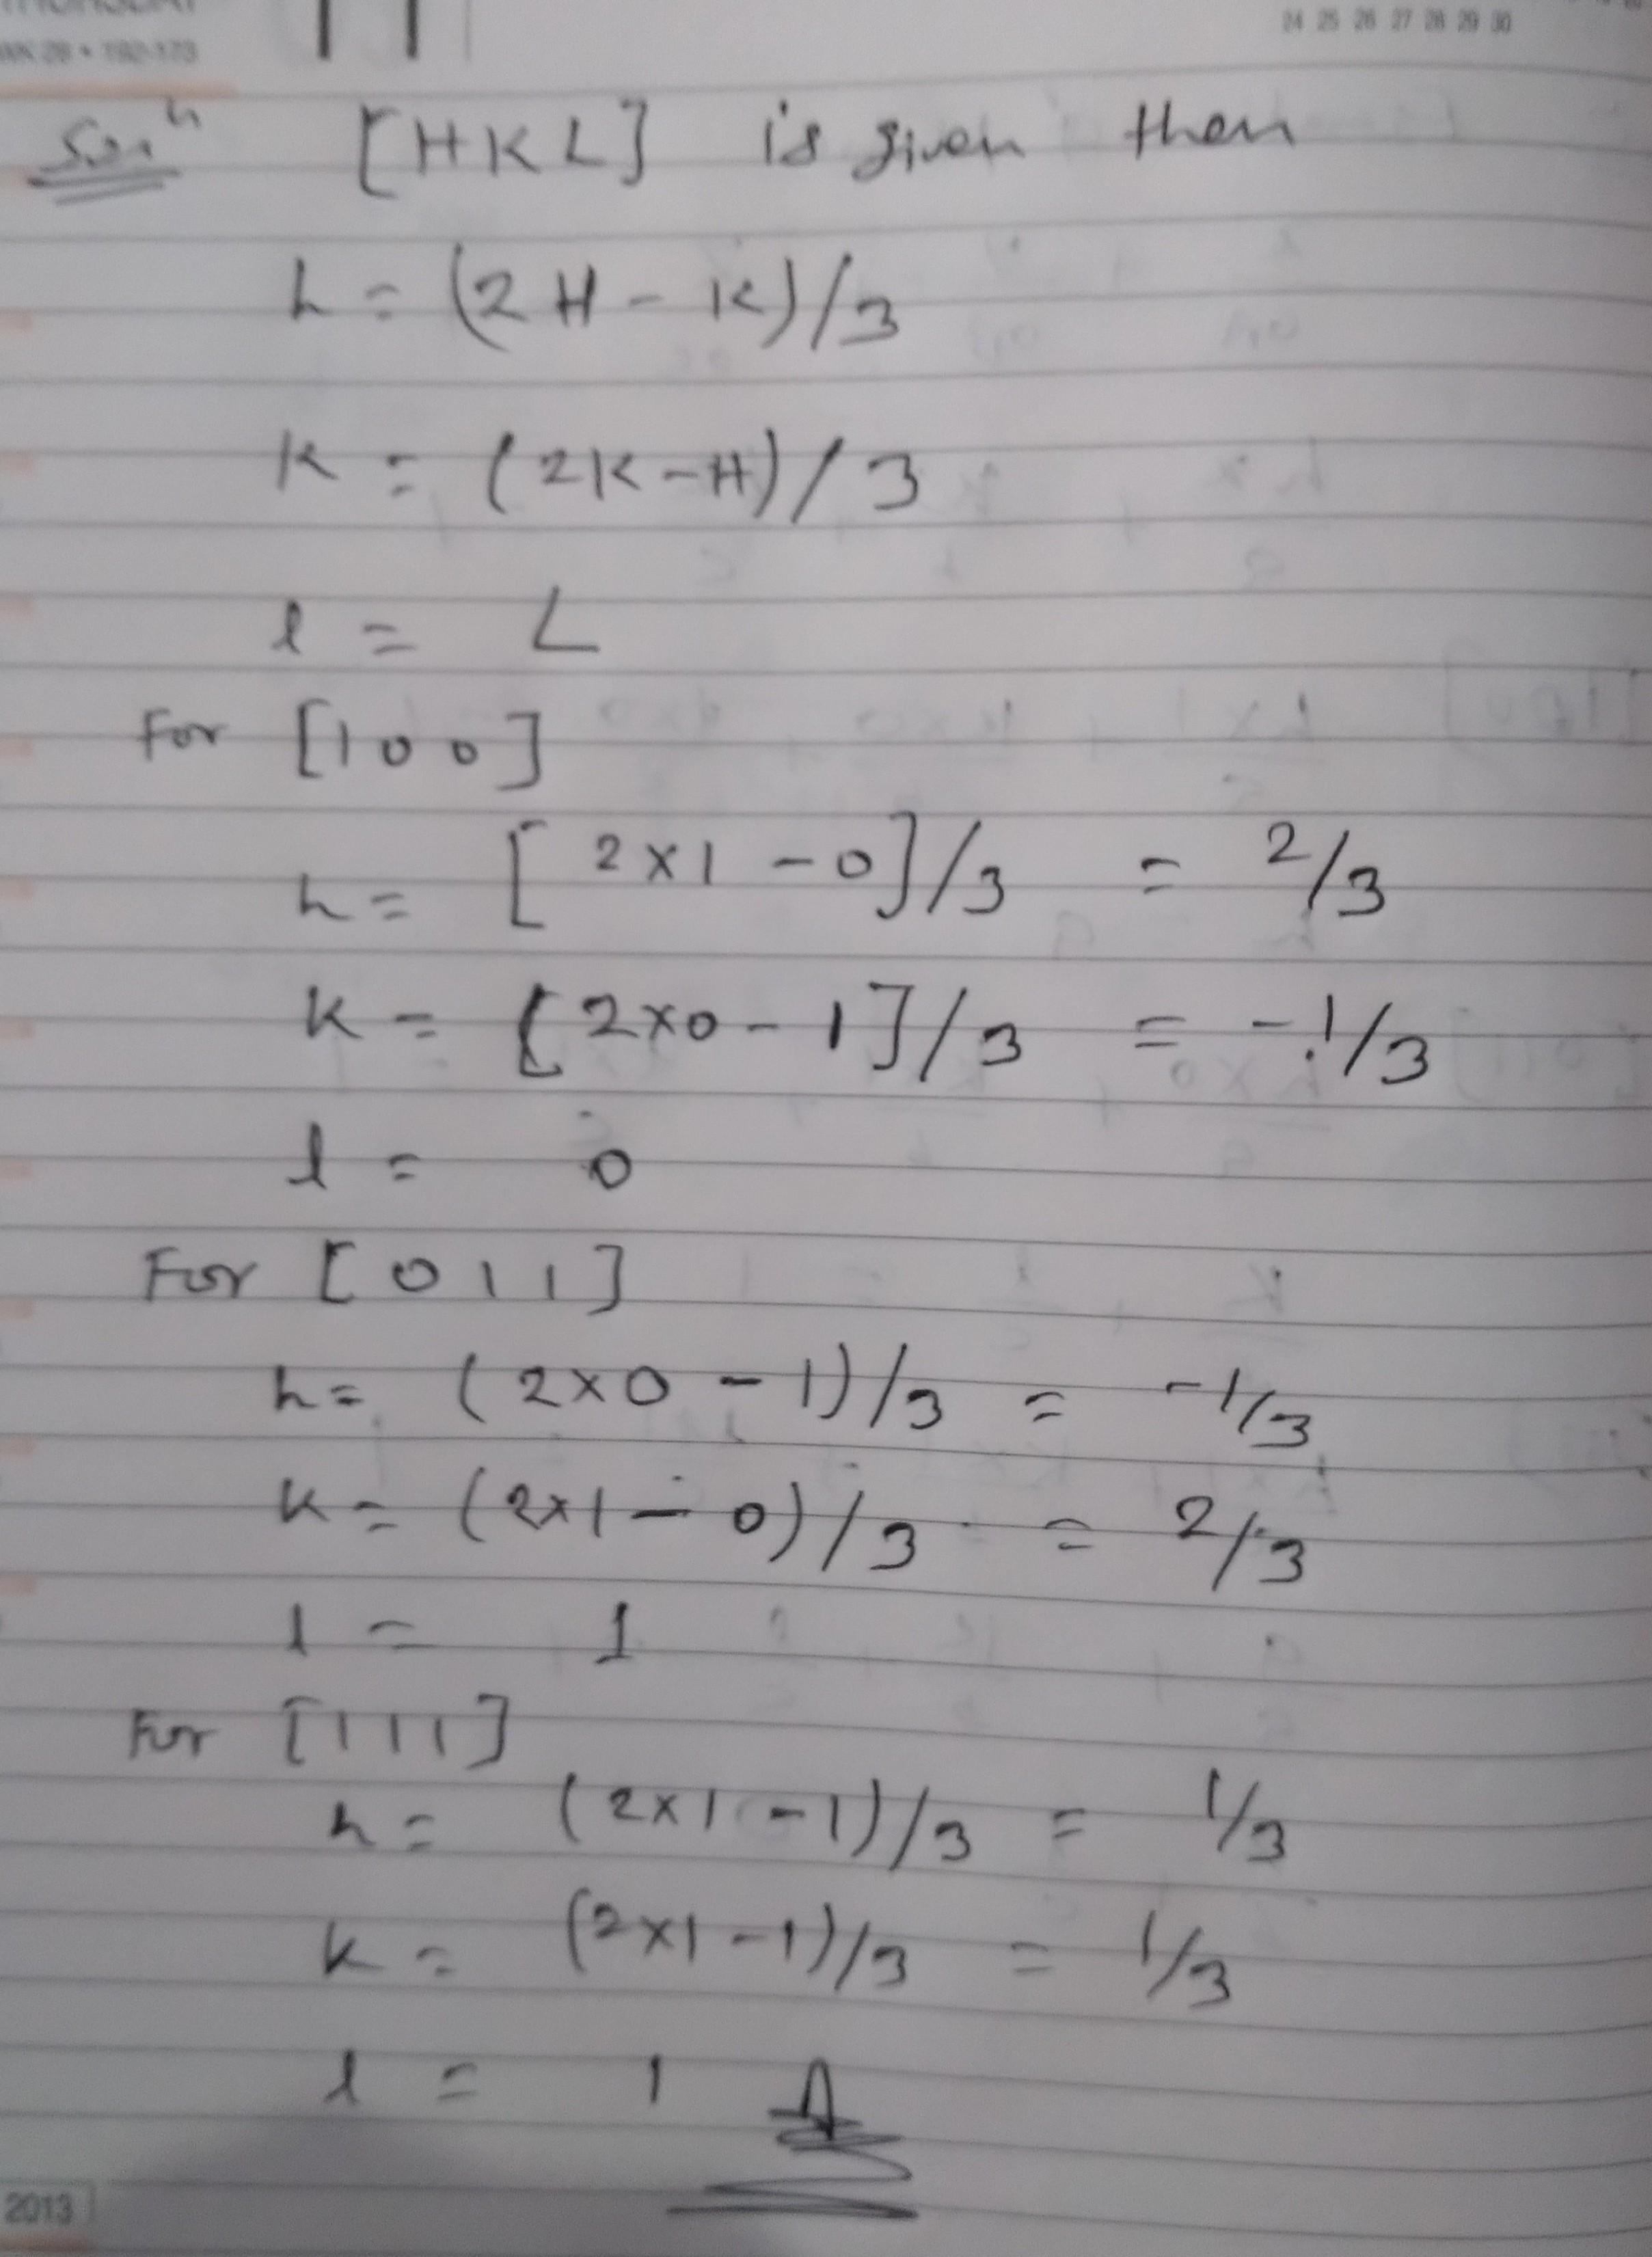 24 25 26 27 28 29 30
Solⁿ [HKL] is given then
h = (2H - K)/3
K = (2K-H)/3
l = L
For [100]
h = [2×1 - 0]/3 = 2/3
K = [2×0 - 1]/3 = -1/3
l = 0
For [011]
h = (2×0 - 1)/3 = -1/3
K = (2×1 - 0)/3 = 2/3
l = 1
For [111]
h = (2×1 - 1)/3 = 1/3
k = (2×1-1)/3 = 1/3
l = 1
2013